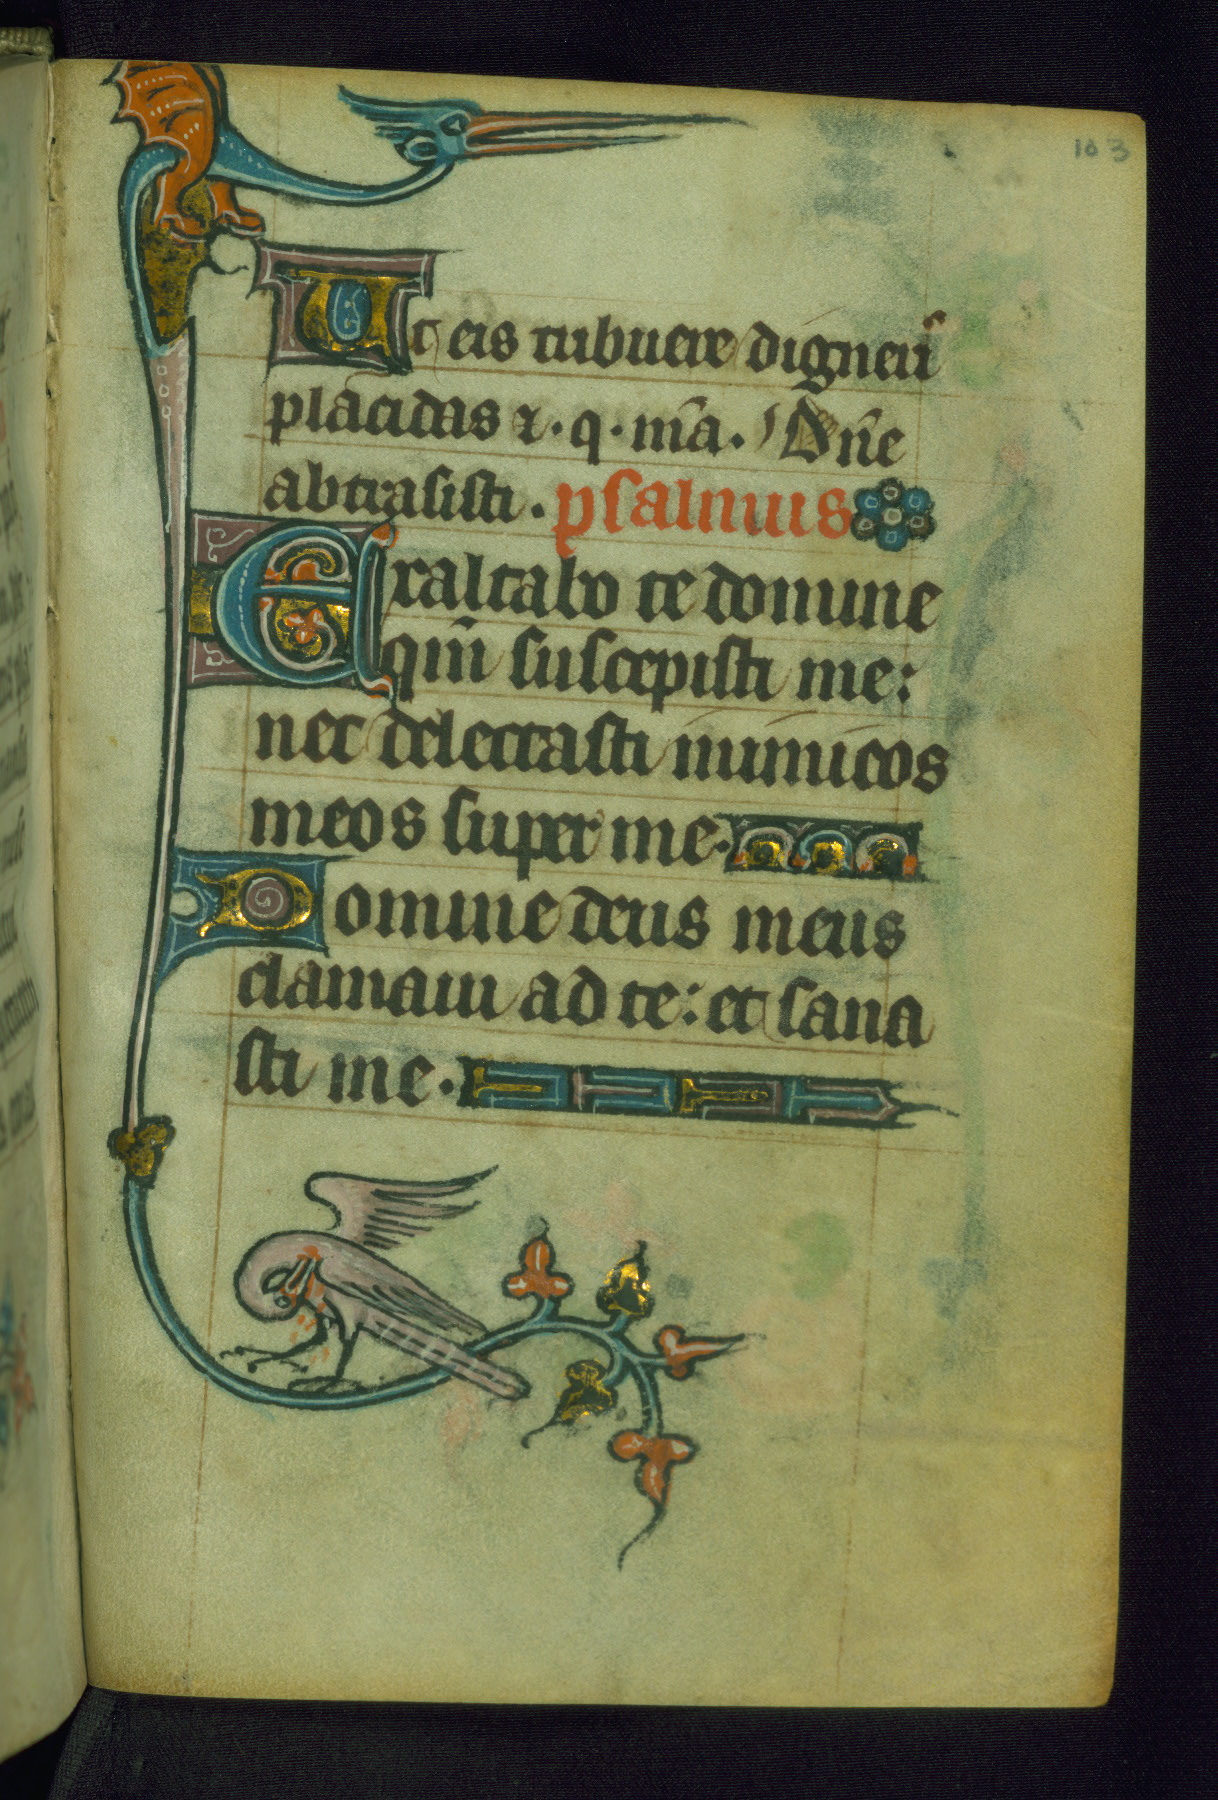 103
Ut eis tribuere digneris
placidas ⁊ · q · mā · Dñe
abtrasisti . psalmus
Exaltabo te domine
qm̄ suscepisti me:
nec delectasti inimicos
meos super me .
Domine deus meus
clamavi ad te : et sana
sti me .